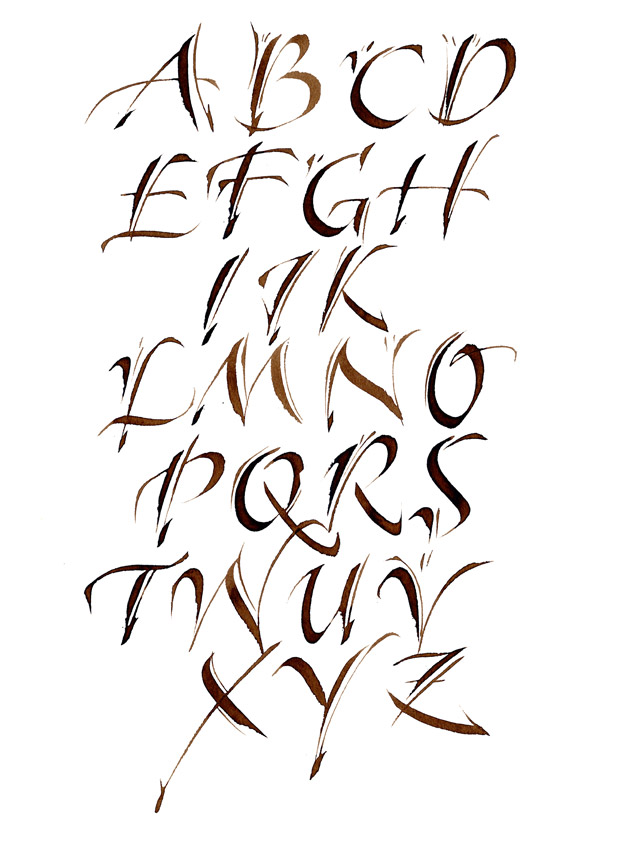 A B C D
E F G H
I J K
L M N O
P Q R S
T W U V
X Y Z